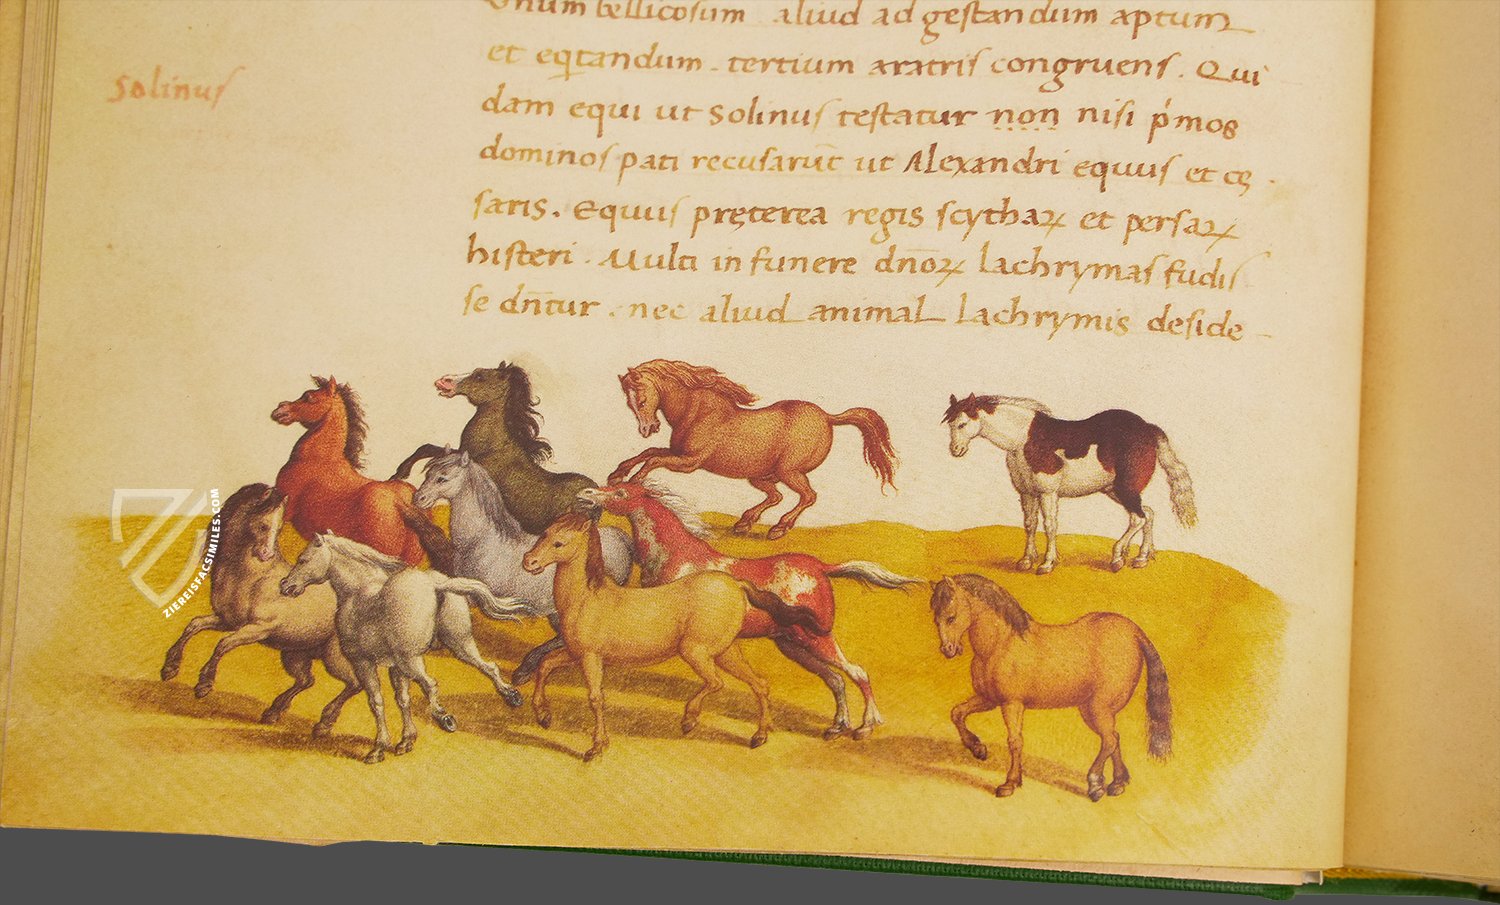 unum bellicosum aliud ad gestandum aptum
Solinus
et eq̃tandum. tertium aratris congruens. Qui
dam equi ut Solinus testatur non nisi p̓mos
dominos pati recusarūt ut Alexandri equus et cę
saris. Equus pręterea regis scythaꝝ et persaꝝ
histeri. Multi in funere dn̄oꝝ lachrymas fudis
se dn̄tur. nec aliud animal lachrymis deside
ZIEREISFACSIMILES.COM